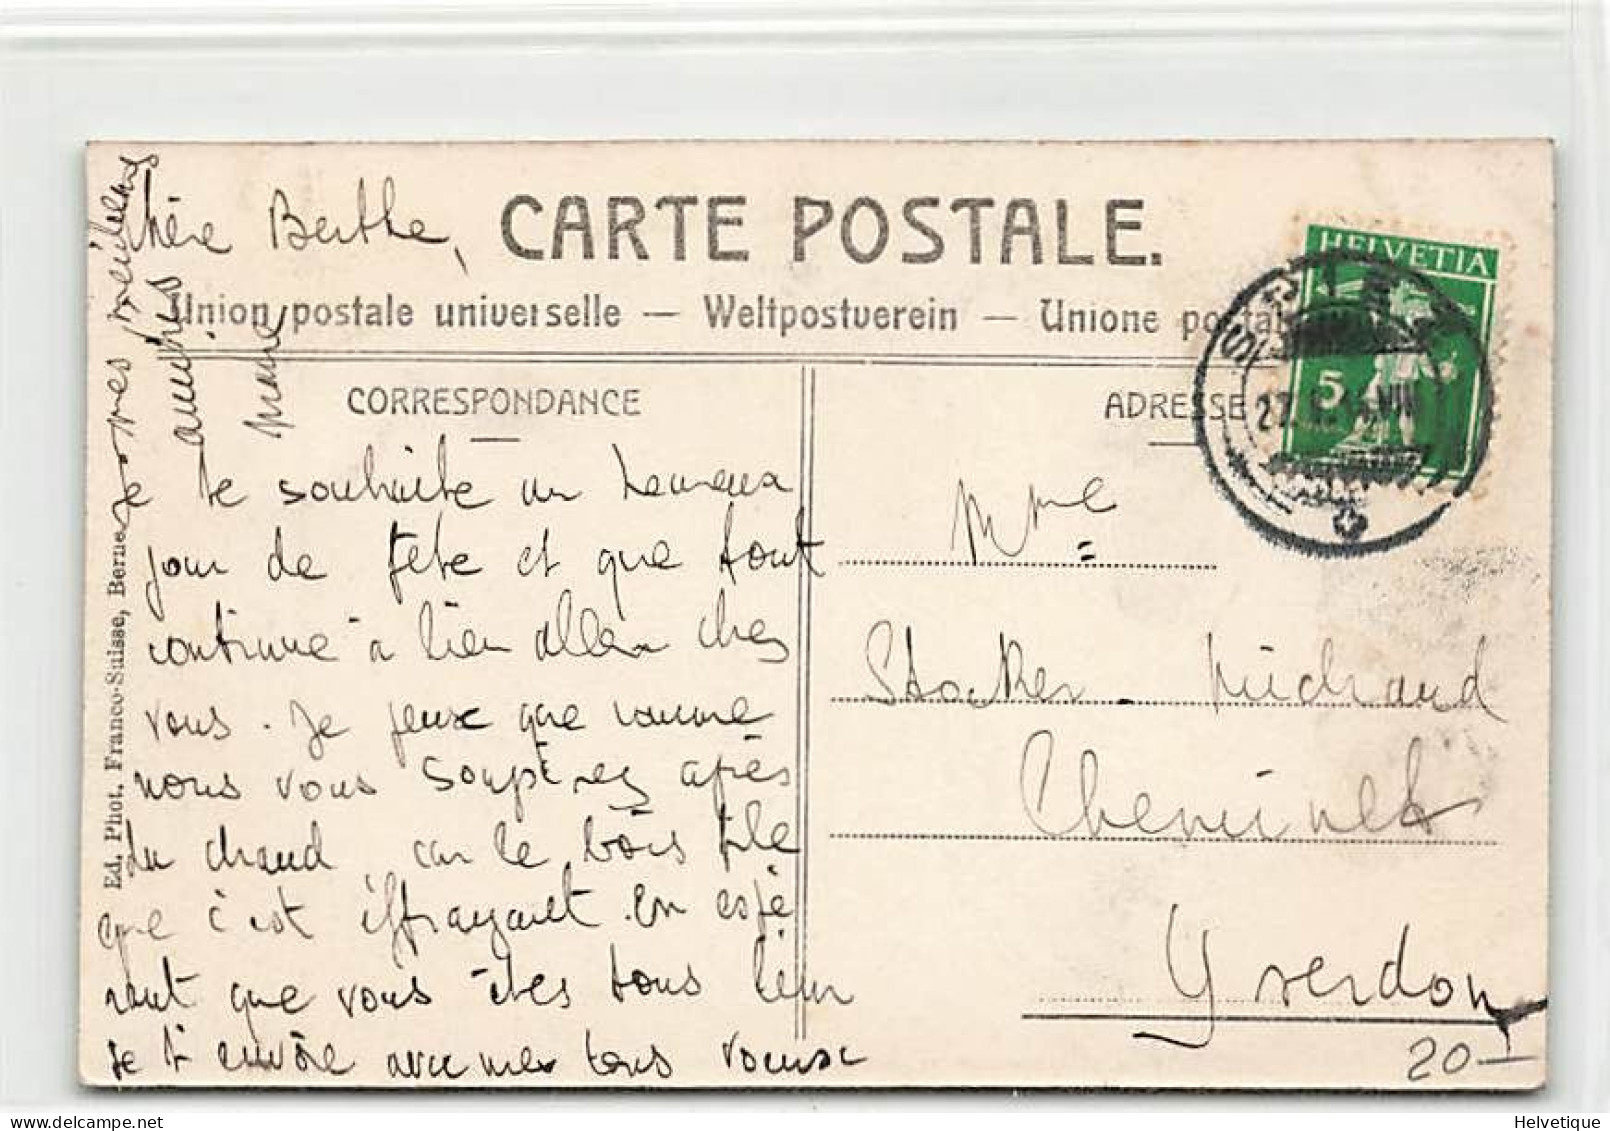 Chère Berthe,
CARTE POSTALE.
Union postale universelle — Weltpostverein — Unione postale
CORRESPONDANCE
ADRESSE
HELVETIA
5
Je te souhaite un heureux
jour de fête et que tout
continue à bien aller chez
vous. Je pense que comme
nous vous soupirez après
du chaud car le bois file
que c'est effrayant. En espé
rant que vous êtes tous bien
je t'envoie avec mes bons voeux
mes meilleures
amitiés
Mme
Stocker-Michaud
Cheminet
Yverdon
20-
Ed. Phot. Franco-Suisse, Berne
Helvetique